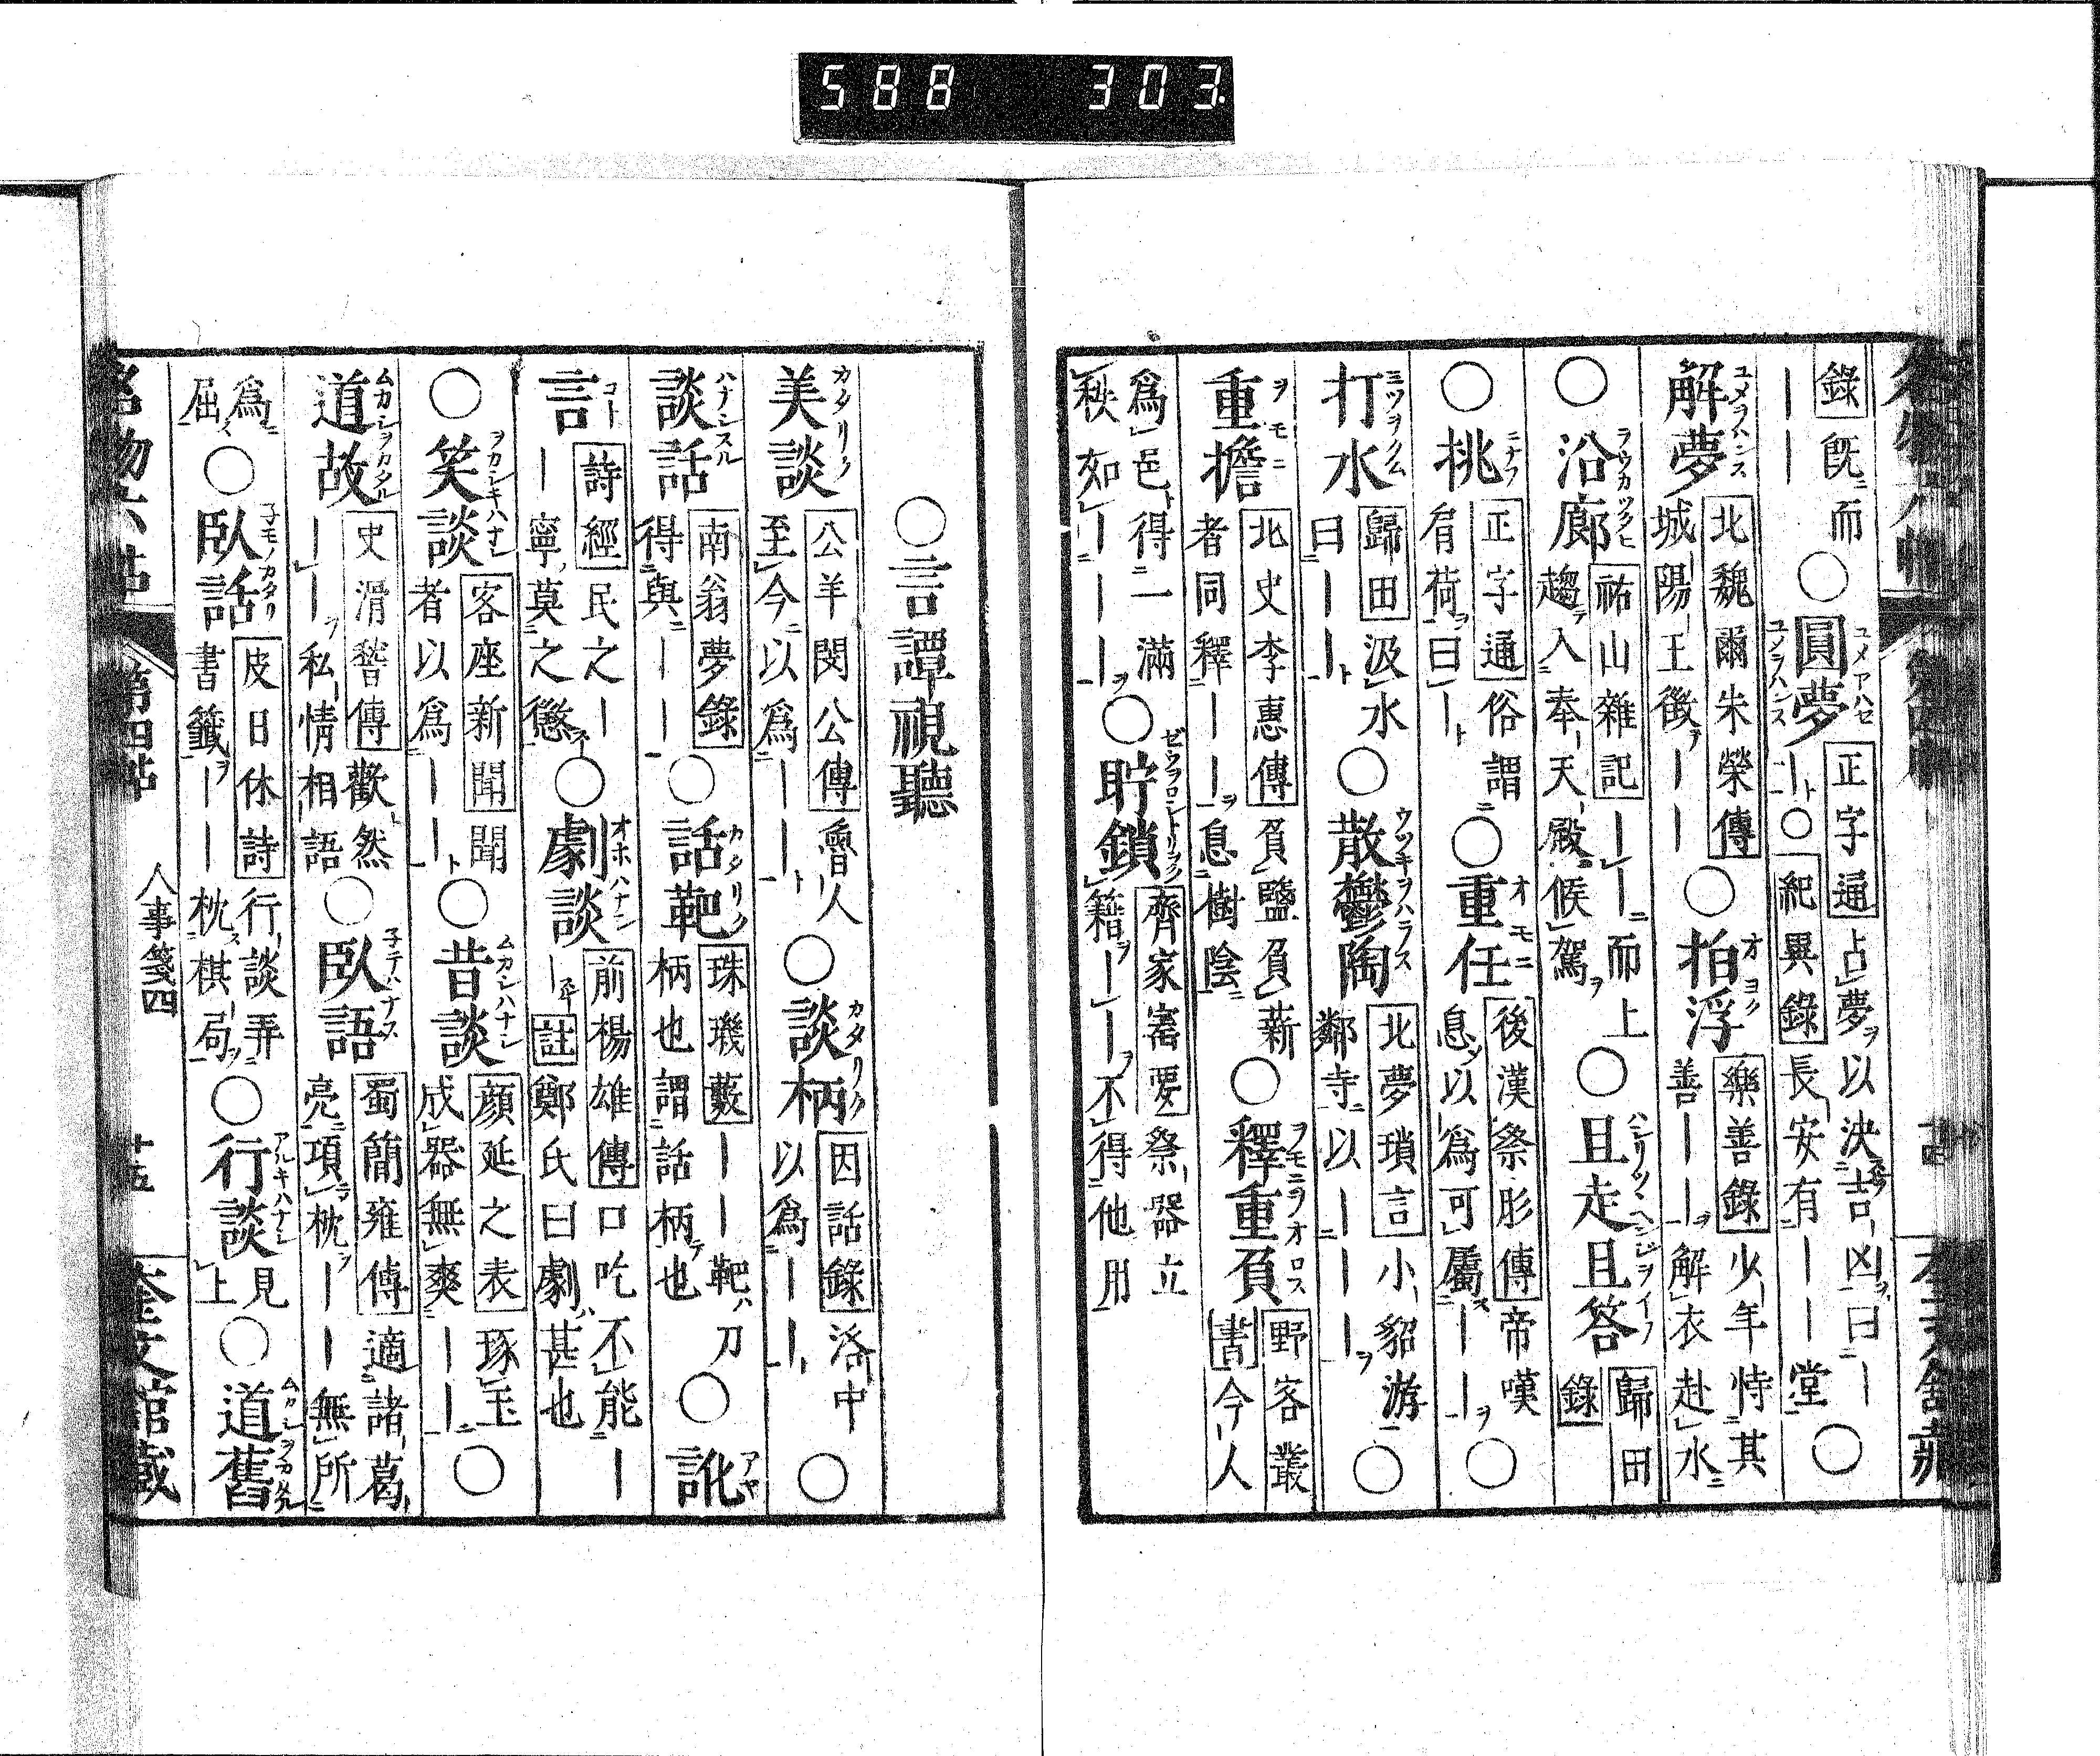 588 303
錄 既而｜｜ ○圓夢 ユメアハセ ユメヲハンス 正字通 占夢以決吉凶曰｜｜ ○ 紀異錄 長安有｜｜堂 ○
解夢 ユメヲハンス 北魏爾朱榮傳 城陽王徽｜｜ ○拍浮 オヨク 樂善錄 少年恃其善｜｜解衣赴水
○沿廊 ラウカツタヒ 祐山雜記 ｜｜而上趨入奉天殿候駕 ○且走且答 ハシリツヽヘンジヲイフ 歸田錄
○挑 ニナフ 正字通 俗謂肩荷曰｜ ○重任 オモニ 後漢祭肜傳 帝嘆息以爲可屬｜｜ ○
打水 ミツヲクム 歸田 汲水曰｜｜ ○散鬱陶 ウツキヲハラス 北夢瑣言 小貂游鄰寺以｜｜｜ ○
重擔 ヲモニ 北史李惠傳 負鹽負薪者同釋｜｜息樹陰 ○釋重負 ヲモニヲオロス 野客叢書 今人
爲邑得一滿秩如｜｜｜｜ ○貯鎖 齊家寶要 祭器立籍｜｜不得他用
○言譚視聽
美談 カタリク 公羊閔公傳 魯人至今以爲｜｜ ○談柄 カタリク 因話錄 洛中以爲｜｜ ○
談話 ハナシスル 南翁夢錄 得與｜｜ ○話靶 カタリク 珠璣藪 ｜｜靶刀柄也謂話柄也 ○訛 アヤ
言 コト 詩經 民之｜｜寧莫之懲 ○劇談 オホハナシ 前楊雄傳 口吃不能｜｜ 註 鄭氏曰劇甚也
○笑談 ヲカシキハナシ 客座新聞 聞者以爲｜｜ ○昔談 ムカシハナシ 顏延之表 琢玉成器無爽｜｜ ○
道故 ムカシヲカタル 史滑稽傳 歡然｜｜私情相語 ○臥語 子テハナス 蜀簡雍傳 適諸葛亮項枕｜｜無所
爲屈 ○臥話 子モノカタリ 皮日休詩 行談弄書籤｜｜枕棋局 ○行談 アルキハナシ 見上 ○道舊 ムカシヲカタル
名物六帖 第四帖 人事箋四 十五 奎文館藏